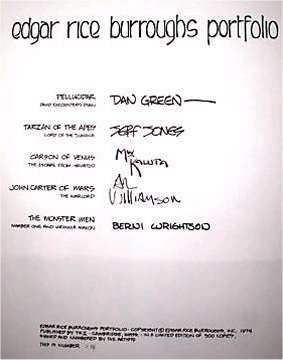 edgar rice burroughs portfolio
PELLUCIDAR
DAN GREEN
TARZAN OF THE APES
LORD OF THE JUNGLE
JEFF JONES
CARSON OF VENUS
THE ESCAPE FROM
MW KALUTA
JOHN CARTER OF MARS
THE WARLORD
AL WILLIAMSON
THE MONSTER MEN
NUMBER ONE AND VIRGINIA MAXON
BERNI WRIGHTSON
EDGAR RICE BURROUGHS PORTFOLIO COPYRIGHT © EDGAR RICE BURROUGHS, INC. 1974
PUBLISHED BY CAMBRIDGE, MASS. IN A LIMITED EDITION OF 500 COPIES,
SIGNED AND NUMBERED BY THE ARTISTS
THIS IS NUMBER